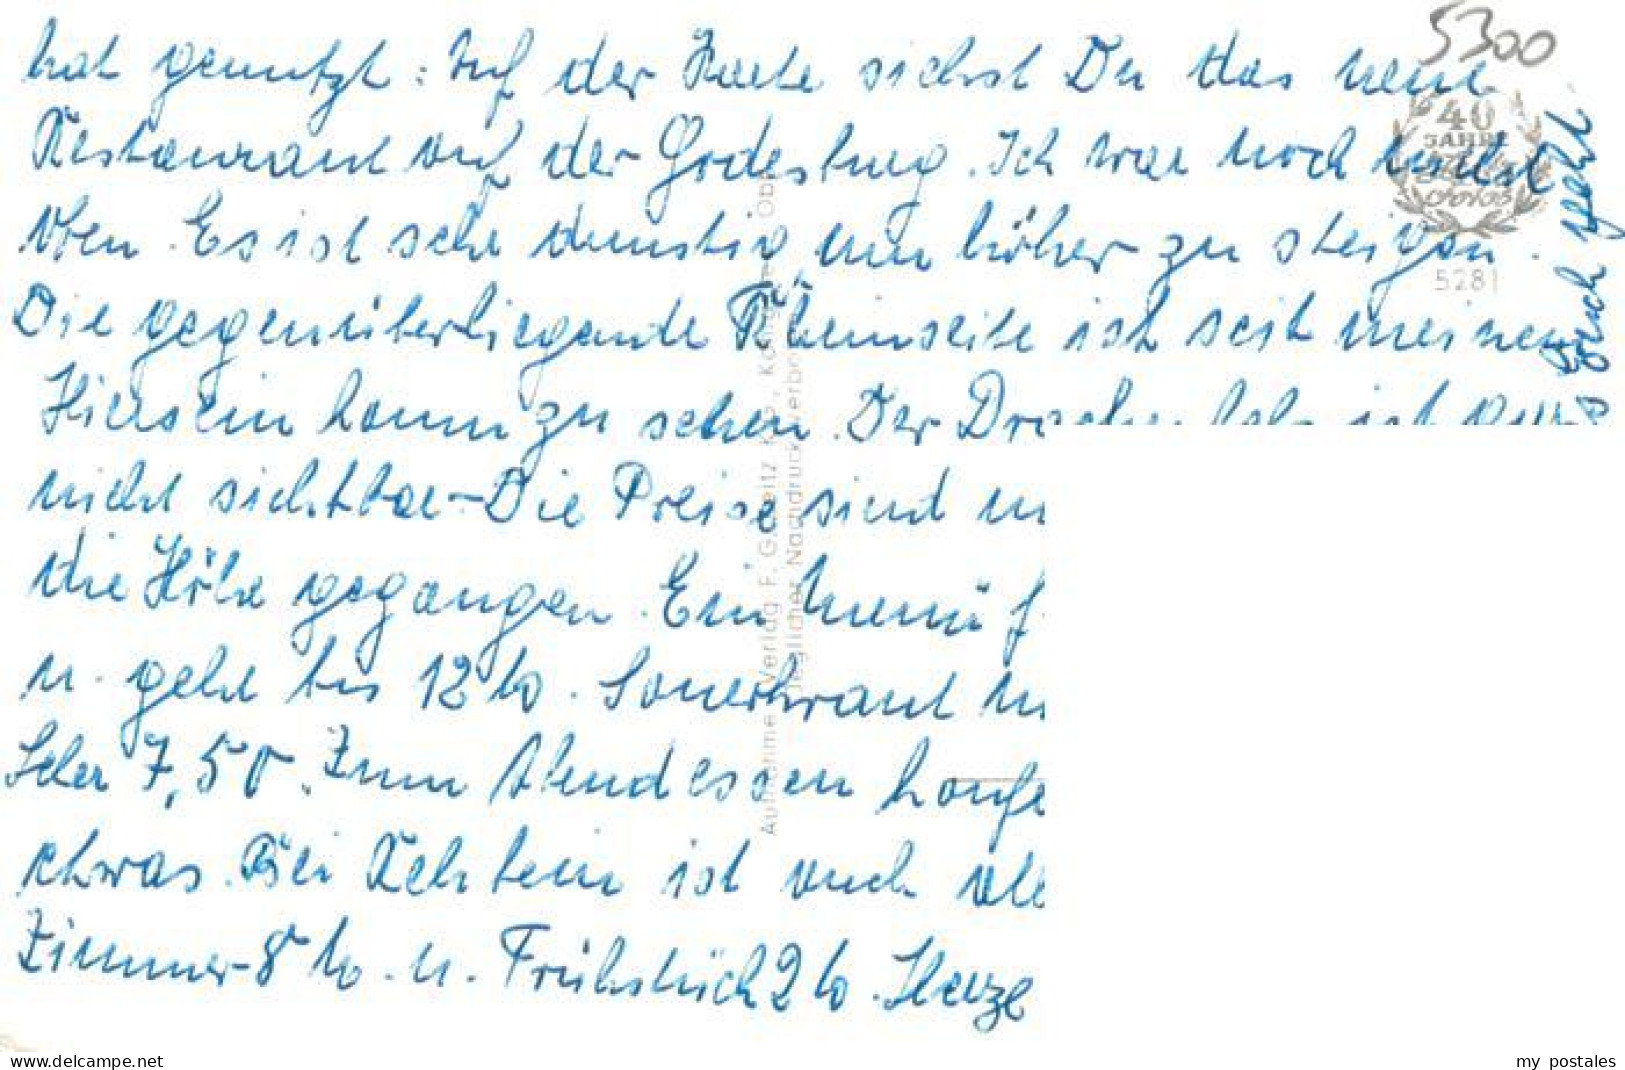 hat genutzt: Auf der Karte siehst Du das neue
Restaurant auf der Godesburg. Ich war noch nicht
oben. Es ist sehr dunstig, um höher zu steigen.
Die gegenüberliegende Rheinseite ist seit meinem
Hiersein kaum zu sehen. Der Drachenfels ist gar
nicht sichtbar - Die Preise sind in
die Höhe gegangen. Ein Menü f
u. geht bis 12 M. Sauerkraut m
7,50. Zum Abendessen kaufe
etwas. Bei ist auch all
Zimmer - 8 M. u. Frühstück 2 M. Herzl
Euch geht
5300
40
JAHRE
5281
Aufnahme u. Verlag: F. G. Zeitz K.G., Königsee Ob
Jeglicher Nachdruck verboten
www.delcampe.net
my_postales